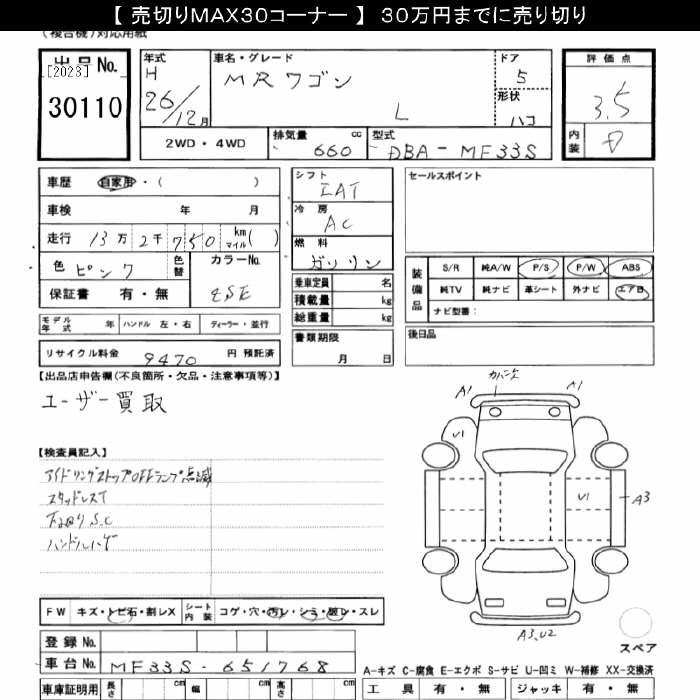 【 売切りMAX30コーナー 】 30万円までに売り切り
(複合機)対応用紙
出品 No.
[2023]
30110
年式
H
26/12月
車名・グレード
MRワゴン
L
ドア
5
形状
ハコ
評価点
3.5
内装
D
2WD・4WD
排気量 660 cc
型式 DBA-MF33S
車歴 自家用・( )
車検 年 月
走行 13万2千750 km マイル( )
色 ピンク 色替
カラーNo.
ZSE
保証書 有・無
シフト
IAT
冷房
AC
燃料
ガソリン
乗車定員 名
積載量 kg
総重量 kg
書類期限
月 日
セールスポイント
装備品
S/R 純A/W P/S P/W ABS
純TV 純ナビ 革シート 外ナビ エアB
ナビ型番:
後日品
モデル年式 年 ハンドル 左・右 ディーラー・並行
リサイクル料金 9470 円 預託済
【出品店申告欄(不良箇所・欠品・注意事項等)】
ユーザー買取
【検査員記入】
アイドリングストップOFFランプ点滅
スタッドレスT
下回りS.C
ハンドルハゲ
A1
A1
U1
U1
A3
A3.U2
スペア
FW キズ・トビ石・割レX シート内装 コゲ・穴・汚レ・シミ・破レ・スレ
登録 No.
車台 No. MF33S-651768
車庫証明用 長さ cm 幅 cm 高さ cm
A-キズ C-腐食 E-エクボ S-サビ U-凹ミ W-補修 XX-交換済
工具 有・無 ジャッキ 有・無